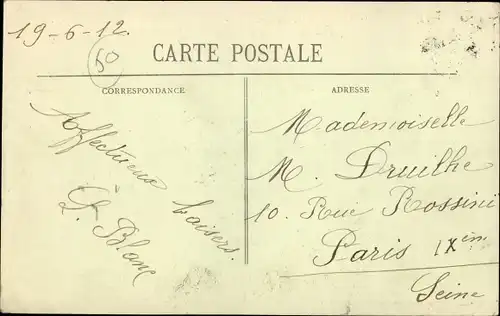 19-6-12.
50
CARTE POSTALE
CORRESPONDANCE
Affectueux baisers.
L. Blanc
ADRESSE
Mademoiselle
M. Druilhe
10. Rue Rossini
Paris IXem
Seine